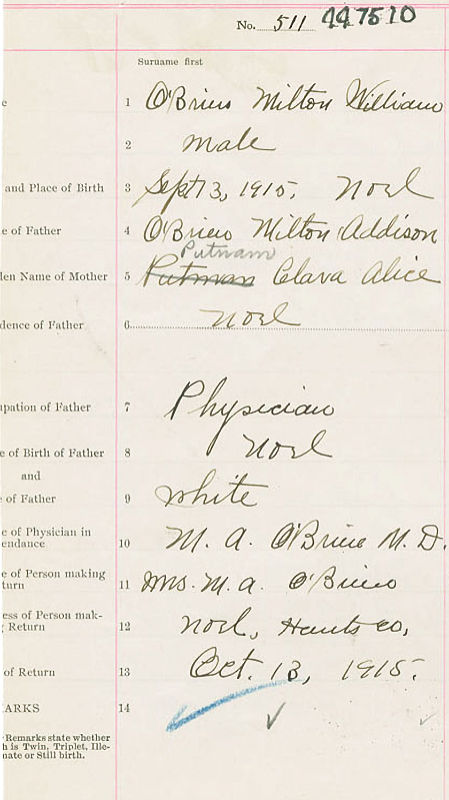 No. 511 447510
Surname first
e 1 O'Brien Milton William
2 male
and Place of Birth 3 Sept 13, 1915. Noel
e of Father 4 O'Brien Milton Addison
Putnam
den Name of Mother 5 Putman Clara Alice
dence of Father 6 Noel
upation of Father 7 Physician
e of Birth of Father 8 Noel
and
e of Father 9 White
e of Physician in
endance 10 M. A. O'Brien M. D.
e of Person making
turn 11 Mrs. M. A. O'Brien
ess of Person mak-
g Return 12 Noel, Hants Co,
of Return 13 Oct. 13, 1915.
ARKS 14
Remarks state whether
h is Twin, Triplet, Ille-
mate or Still birth.